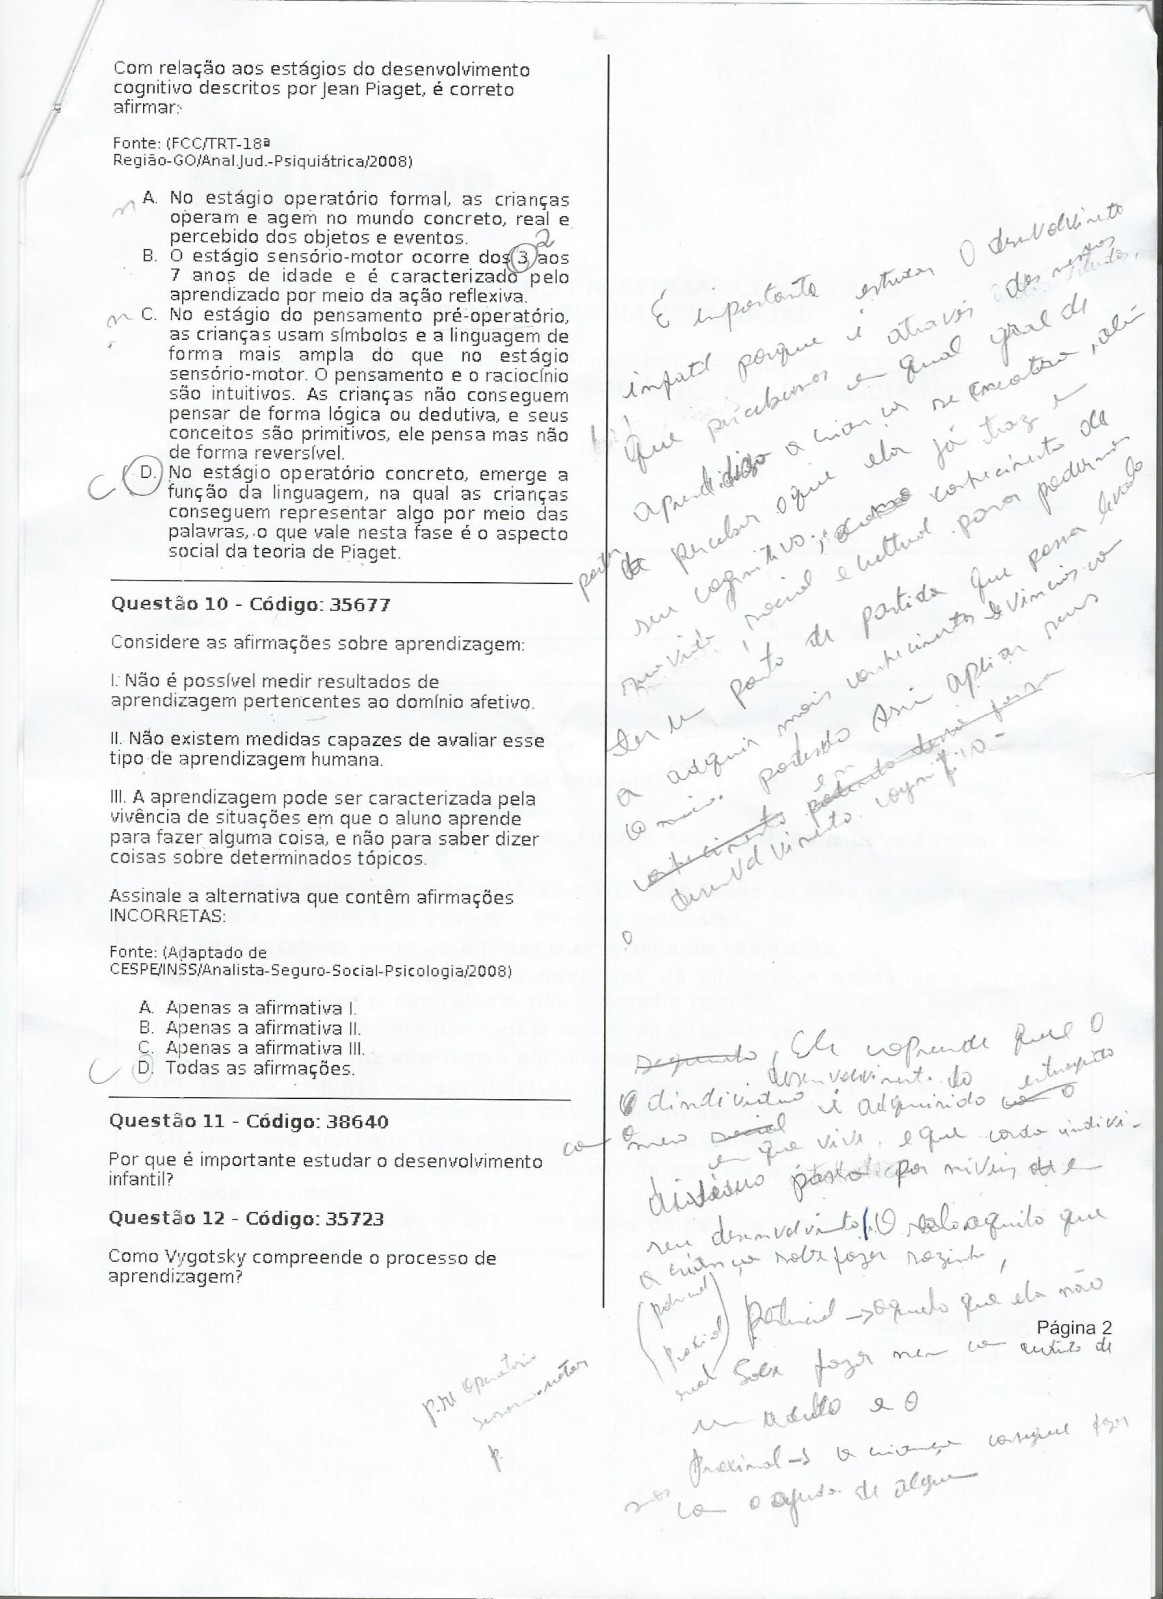 Com relação aos estágios do desenvolvimento
cognitivo descritos por Jean Piaget, é correto
afirmar:
Fonte: (FCC/TRT-18ª
Região-GO/Anal.Jud.-Psiquiátrica/2008)
n A. No estágio operatório formal, as crianças
operam e agem no mundo concreto, real e
percebido dos objetos e eventos.
2
B. O estágio sensório-motor ocorre dos 3 aos
7 anos de idade e é caracterizado pelo
aprendizado por meio da ação reflexiva.
n C. No estágio do pensamento pré-operatório,
as crianças usam símbolos e a linguagem de
forma mais ampla do que no estágio
sensório-motor. O pensamento e o raciocínio
são intuitivos. As crianças não conseguem
pensar de forma lógica ou dedutiva, e seus
conceitos são primitivos, ele pensa mas não
de forma reversível.
C D. No estágio operatório concreto, emerge a
função da linguagem, na qual as crianças
conseguem representar algo por meio das
palavras, o que vale nesta fase é o aspecto
social da teoria de Piaget.
Questão 10 - Código: 35677
Considere as afirmações sobre aprendizagem:
I. Não é possível medir resultados de
aprendizagem pertencentes ao domínio afetivo.
II. Não existem medidas capazes de avaliar esse
tipo de aprendizagem humana.
III. A aprendizagem pode ser caracterizada pela
vivência de situações em que o aluno aprende
para fazer alguma coisa, e não para saber dizer
coisas sobre determinados tópicos.
Assinale a alternativa que contêm afirmações
INCORRETAS:
Fonte: (Adaptado de
CESPE/INSS/Analista-Seguro-Social-Psicologia/2008)
A. Apenas a afirmativa I.
B. Apenas a afirmativa II.
C. Apenas a afirmativa III.
C D. Todas as afirmações.
Questão 11 - Código: 38640
Por que é importante estudar o desenvolvimento
infantil?
Questão 12 - Código: 35723
Como Vygotsky compreende o processo de
aprendizagem?
É importante estudar o
porque é através dos
que percebemos em qual grau de
a criança se encontra, além
de perceber o que ela já traz em
seu cognitivo, conhecimento de
sua vida social e cultural para podermos
ter um ponto de partida que possa
a adquirir mais conhecimentos
o meio, podendo assim seus
conhecimento podendo
em
desenvolvimento cognitivo
Segundo, Ele que o
desenvolvimento do
é adquirido com o
com o meio social
em que vive, e que cada
por níveis de
seu desenvolvimento. O real aquilo que
a criança sabe fazer sozinha,
(potencial
proximal)
real
Potencial → aquilo que ela não
sabe fazer nem com auxílio de
um adulto e o
Proximal → a criança consegue fazer
com a ajuda de alguém
Pré Operatório
sensorio motor
p.
Página 2